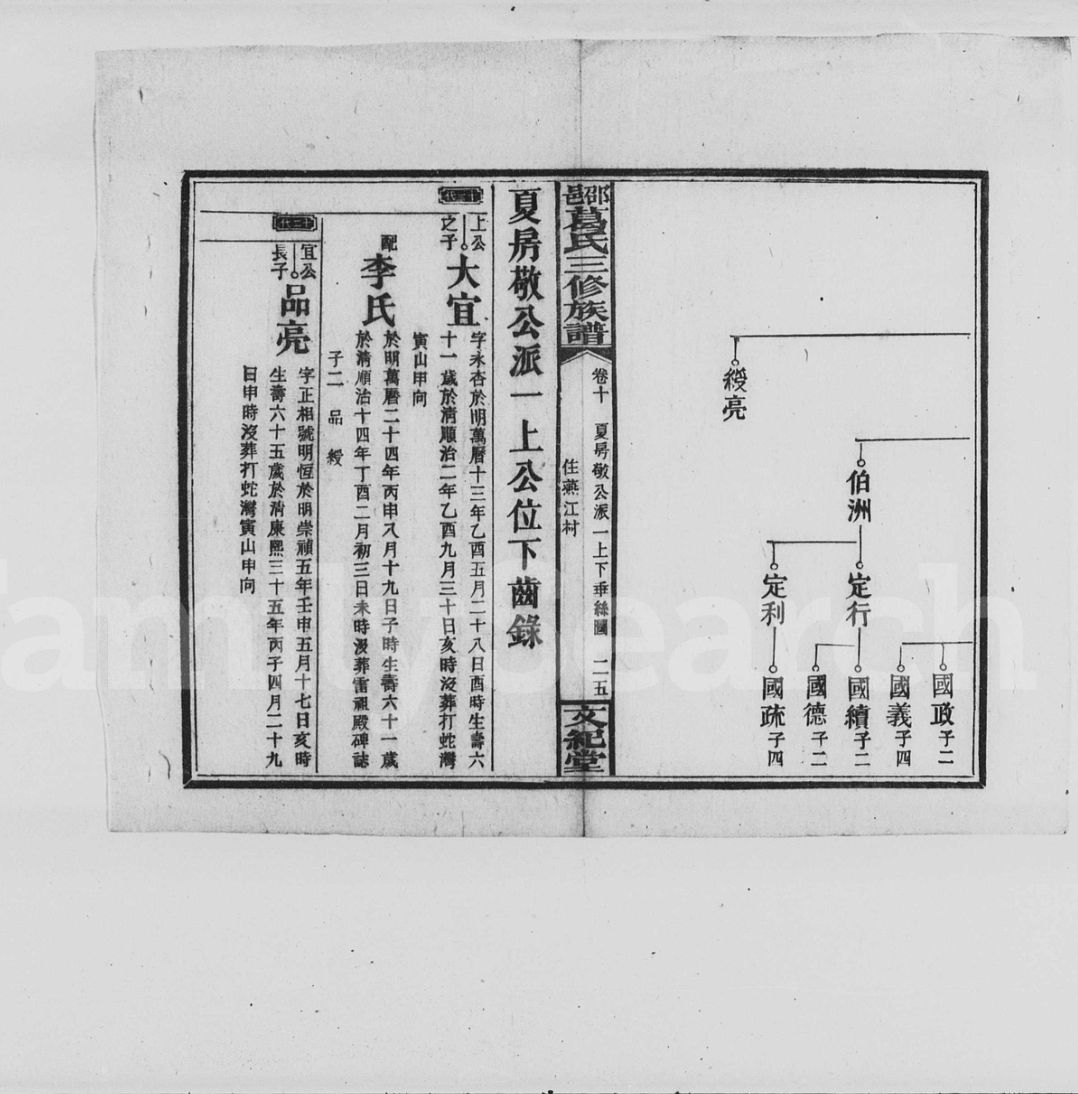 綬亮
伯洲
定行
定利
國政子二
國義子四
國續子二
國德子二
國疏子四
邵邑葛氏三修族譜
卷十 夏房敬公派一上下垂絲圖 二五
住燕江村
文紀堂
夏房敬公派一上公位下齒錄
上公之子
大宜
字永杏於明萬曆十三年乙酉五月二十八日酉時生壽六
十一歲於清順治二年乙酉九月三十日亥時沒葬打蛇灣
寅山申向
配李氏
於明萬曆二十四年丙申八月十九日子時生壽六十一歲
於清順治十四年丁酉二月初三日未時沒葬雷祖殿碑誌
子二 品 綬
宜公長子
品亮
字正相號明恆於明崇禎五年壬申五月十七日亥時
生壽六十五歲於清康熙三十五年丙子四月二十九
日申時沒葬打蛇灣寅山申向
FamilySearch